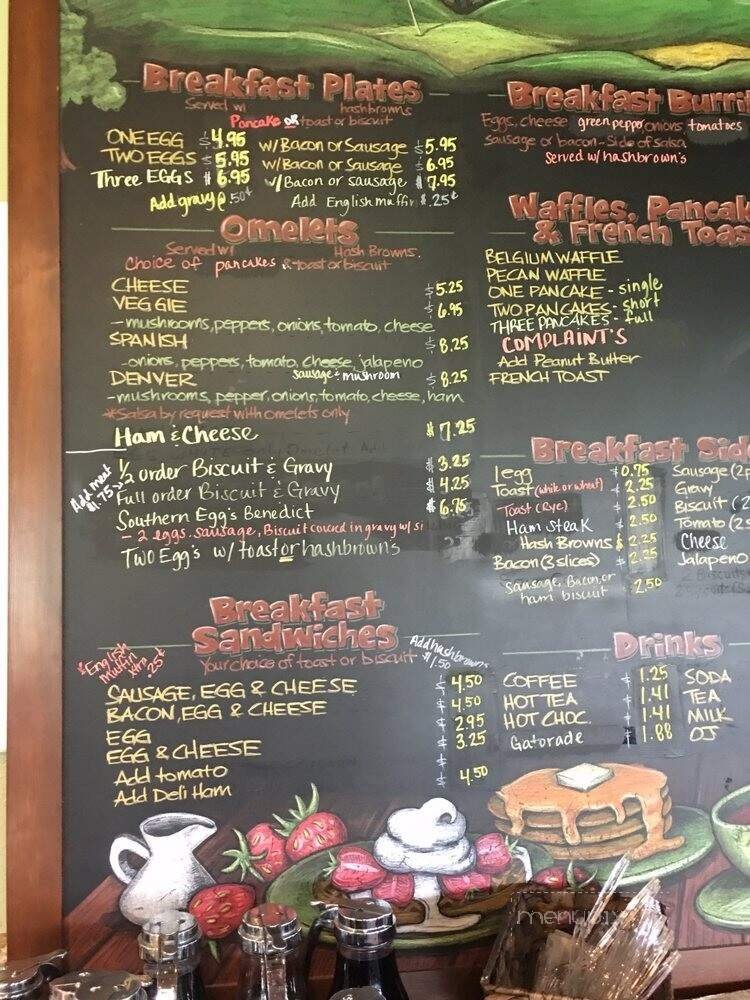 Breakfast Plates
Served w/ hashbrowns
Pancake or toast or biscuit
ONE EGG $4.95 w/Bacon or Sausage $5.95
TWO EGGS $5.95 w/Bacon or Sausage $6.95
Three EGGS $6.95 w/Bacon or sausage $7.95
Add gravy @ .50¢ Add English muffin $.25¢
Omelets
Served w/ Hash Browns.
Choice of pancakes & toast or biscuit
CHEESE $5.25
VEGGIE $6.95
-mushrooms, peppers, onions, tomato, cheese
SPANISH $8.25
-onions, peppers, tomato, cheese, jalapeno
sausage & mushroom
DENVER $8.25
-mushrooms, pepper, onions, tomato, cheese, ham
*Salsa by request with omelets only
Ham & Cheese $7.25
Add meat $1.75
1/2 order Biscuit & Gravy $3.25
Full order Biscuit & Gravy $4.25
Southern Egg's Benedict $6.75
- 2 eggs. sausage, Biscuit covered in gravy w/ si
Two Egg's w/ toast or hashbrown's
Breakfast
Sandwiches
Your choice of toast or biscuit
*English Muffin xtra .25¢
Add hashbrowns $1.50
SAUSAGE, EGG & CHEESE $4.50
BACON, EGG & CHEESE $4.50
EGG $2.95
EGG & CHEESE $3.25
Add tomato $
Add Deli Ham $4.50
Breakfast Burri
Eggs, cheese green pepper onions tomatoes
sausage or bacon - Side of salsa
Served w/ hashbrown's
Waffles, Pancak
& French Toas
BELGIUM WAFFLE
PECAN WAFFLE
ONE PANCAKE - single
TWO PANCAKES - short
THREE PANCAKES - full
COMPLAINT'S
Add Peanut Butter
FRENCH TOAST
Breakfast Sid
1 egg $0.75 Sausage (2p
Toast (white or wheat) $2.25 Gravy
Toast (Rye) $2.50 Biscuit (2
Ham Steak $2.50 Tomato (2s
Hash Browns $2.25 Cheese
Bacon (3 slices) $2.25 Jalapeno
Sausage, Bacon, or
ham biscuit $2.50
Drinks
COFFEE $1.25 SODA
HOT TEA $1.41 TEA
HOT CHOC. $1.41 MILK
Gatorade $1.88 OJ
menupix